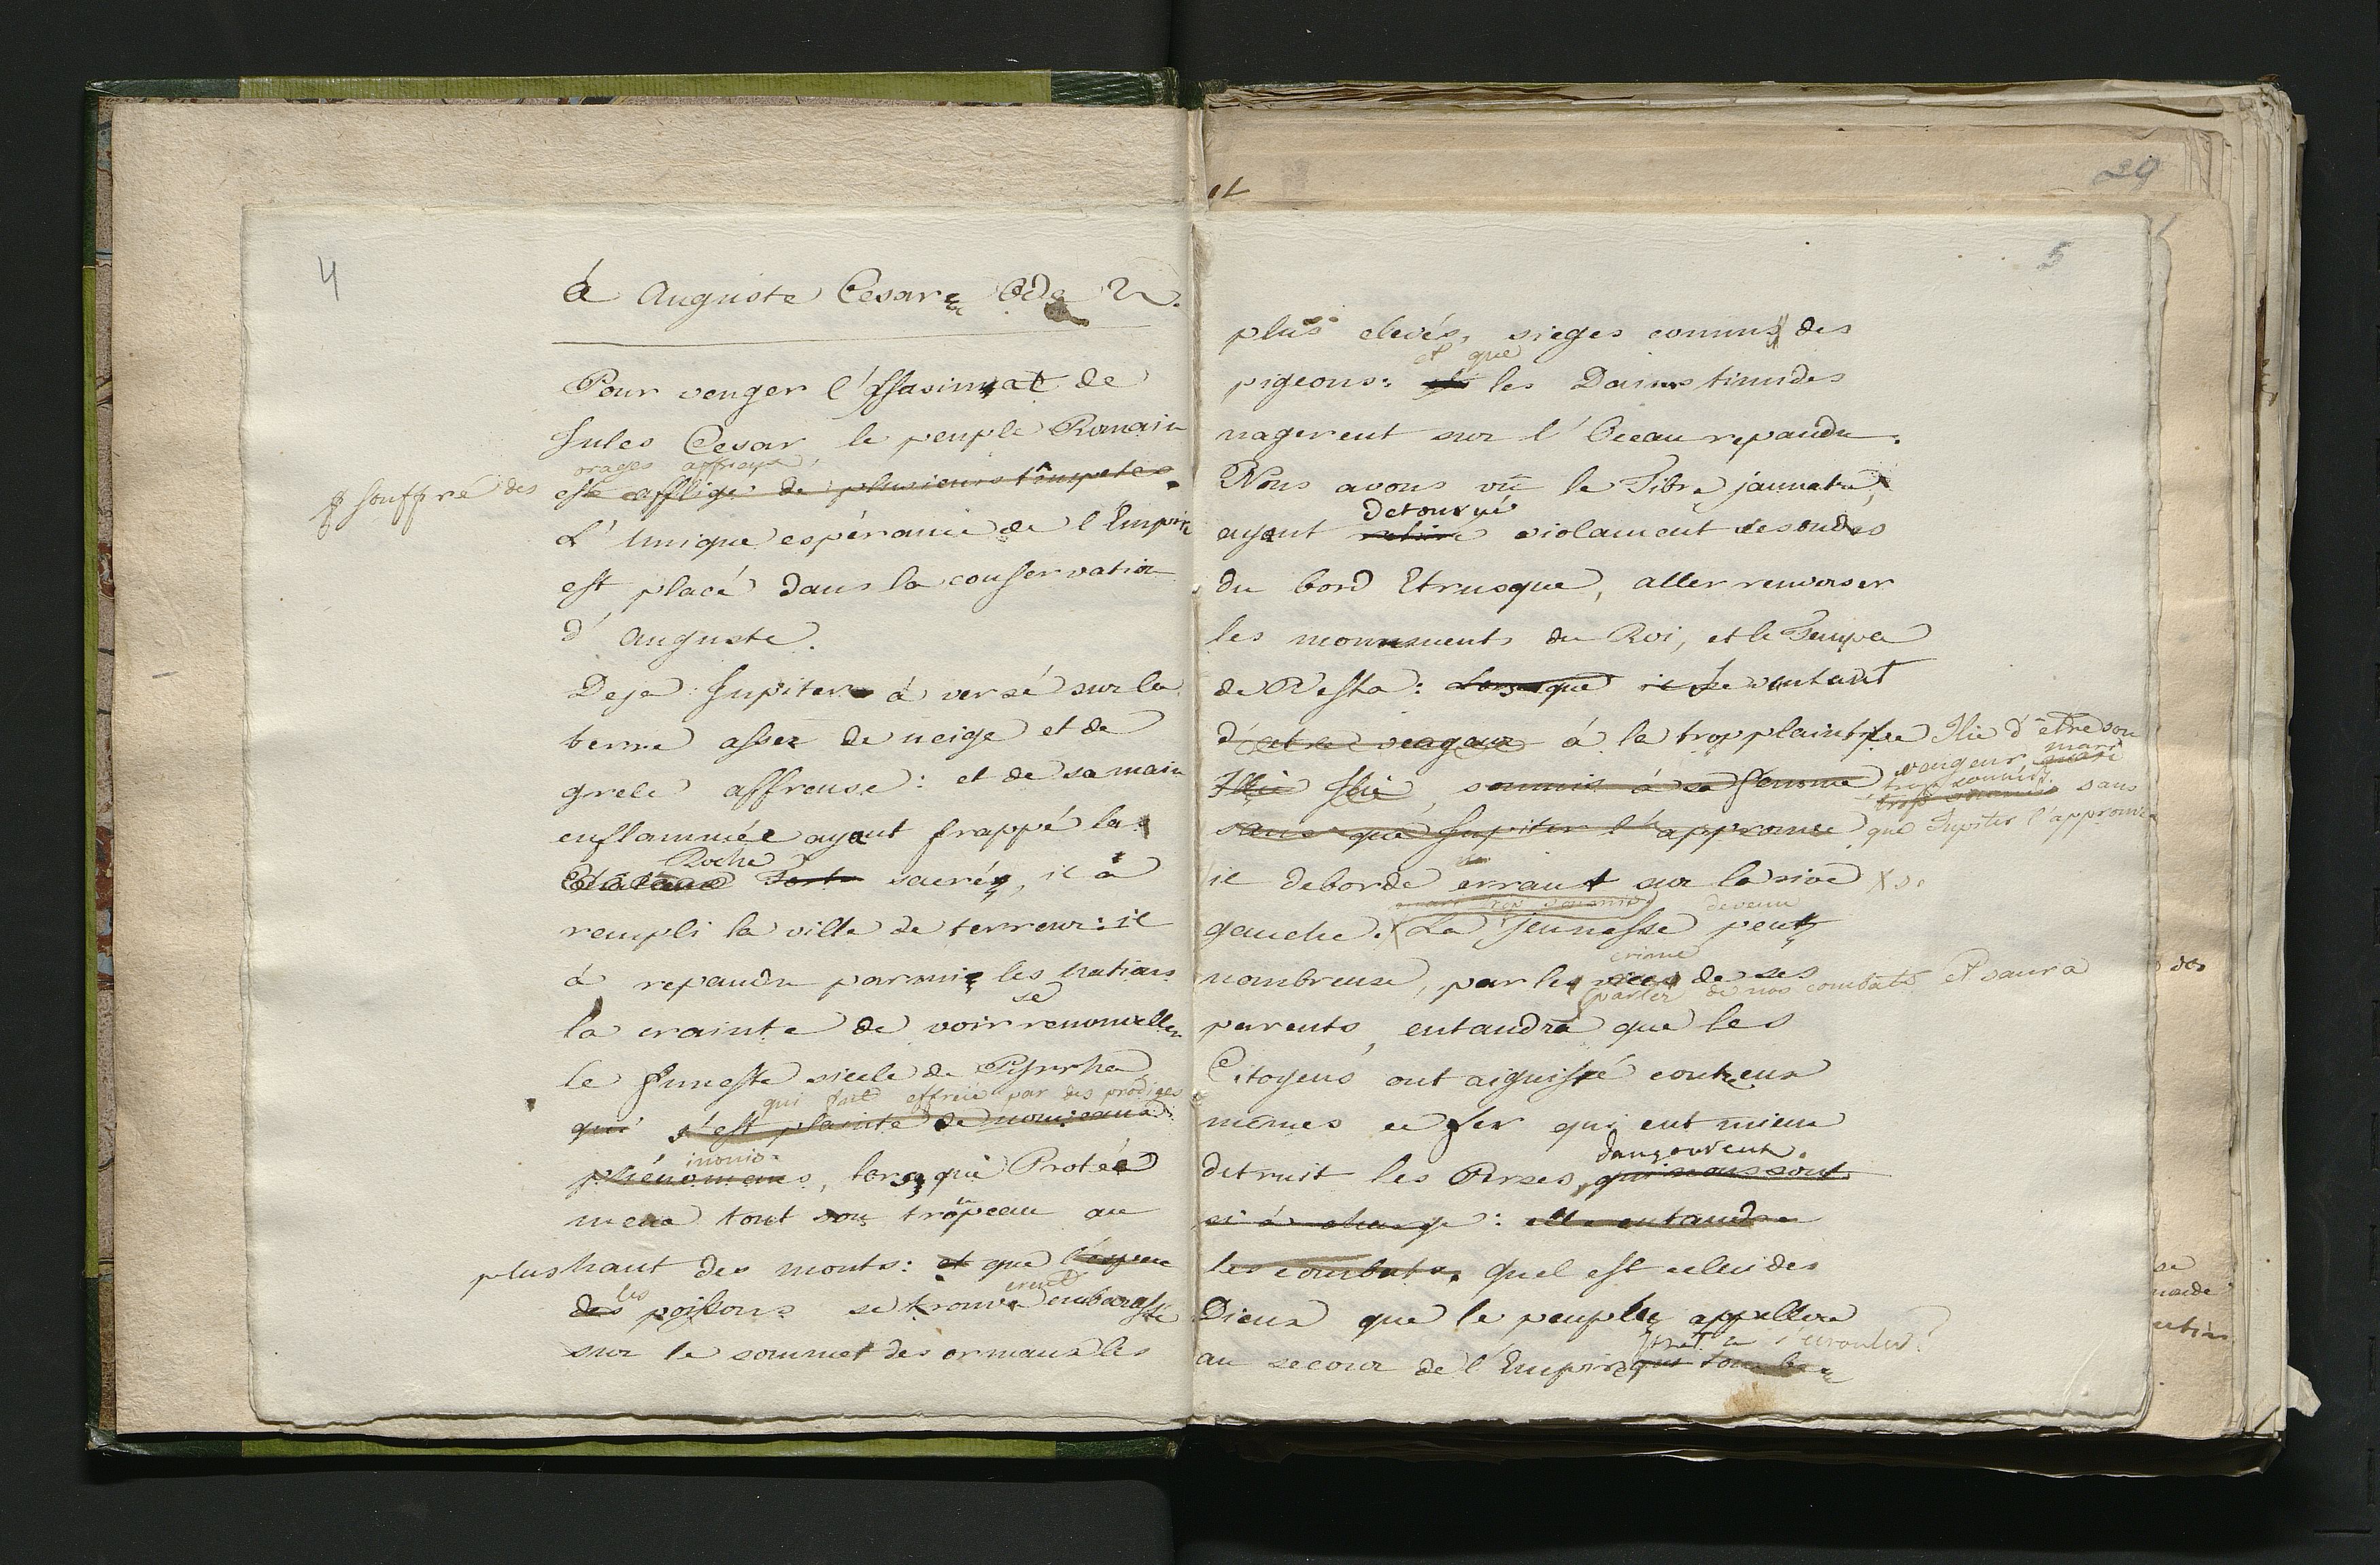 4
à Auguste Cesar Ode 2.
Pour venger l'assasinat de
Jules Cesar, le peuple Romain
orages affreux,
à souffre des est affligé de plusieurs tempetes.
L'unique espérance de l'Empire
est placé dans la conservation
d'Auguste.
Deja Jupiter à versé sur la
terre assez de neige et de
grele affreuse : et de sa main
enflammée ayant frappé la
Roche
sacrée, il à
rempli la ville de terreur : il
à repandu parmie les Nations
se
la crainte de voir renouveller
le funeste siecle de Pyrrha
qui fut effreié par des prodiges
qui s'est plainte de nouveaux
inouis
phénomenes, lorsque Protée
mena tout son tropeau au
plus haut des monts : et que l'espece
les erent
des poissons se trouva embarassé
sur le sommet des ormaux les
29
et
5
plus elevés, sieges connus des
et que
pigeons : les Daims timides
nagerent sur l'Ocean repandu.
Nous avons vû le Tibre jaunatre,
detourné
ayant retiré violament ses ondes
du bord Etrusque, aller renverser
les monuments du Roi, et le Temple
de Vesta : lorsque il se vantant
d'etre vengeur à la trop plaintive Ilie d'être son
vengeur mari
Ilie, soumis à sa femme trop soumis, sans
sans que Jupiter l'approuve que Jupiter l'approuve
il deborde errant sur la rive X s.
mari trop soumis devenu
gauche. X La jeunesse peu
crime
nombreuse, par les vices de ses
parler de nos combats et saura
parents, entandra que les
Citoyens ont aiguisé contreux
mêmes ce fer qui eut mieux
dangereux.
detruit les Perses, qui nous sont
si à charge : elle entandra
les combats. Quel est celui des
Dieux que le peuple appellera
pret à s'ecrouler ?
au secour de l'Empire qui tombe
des